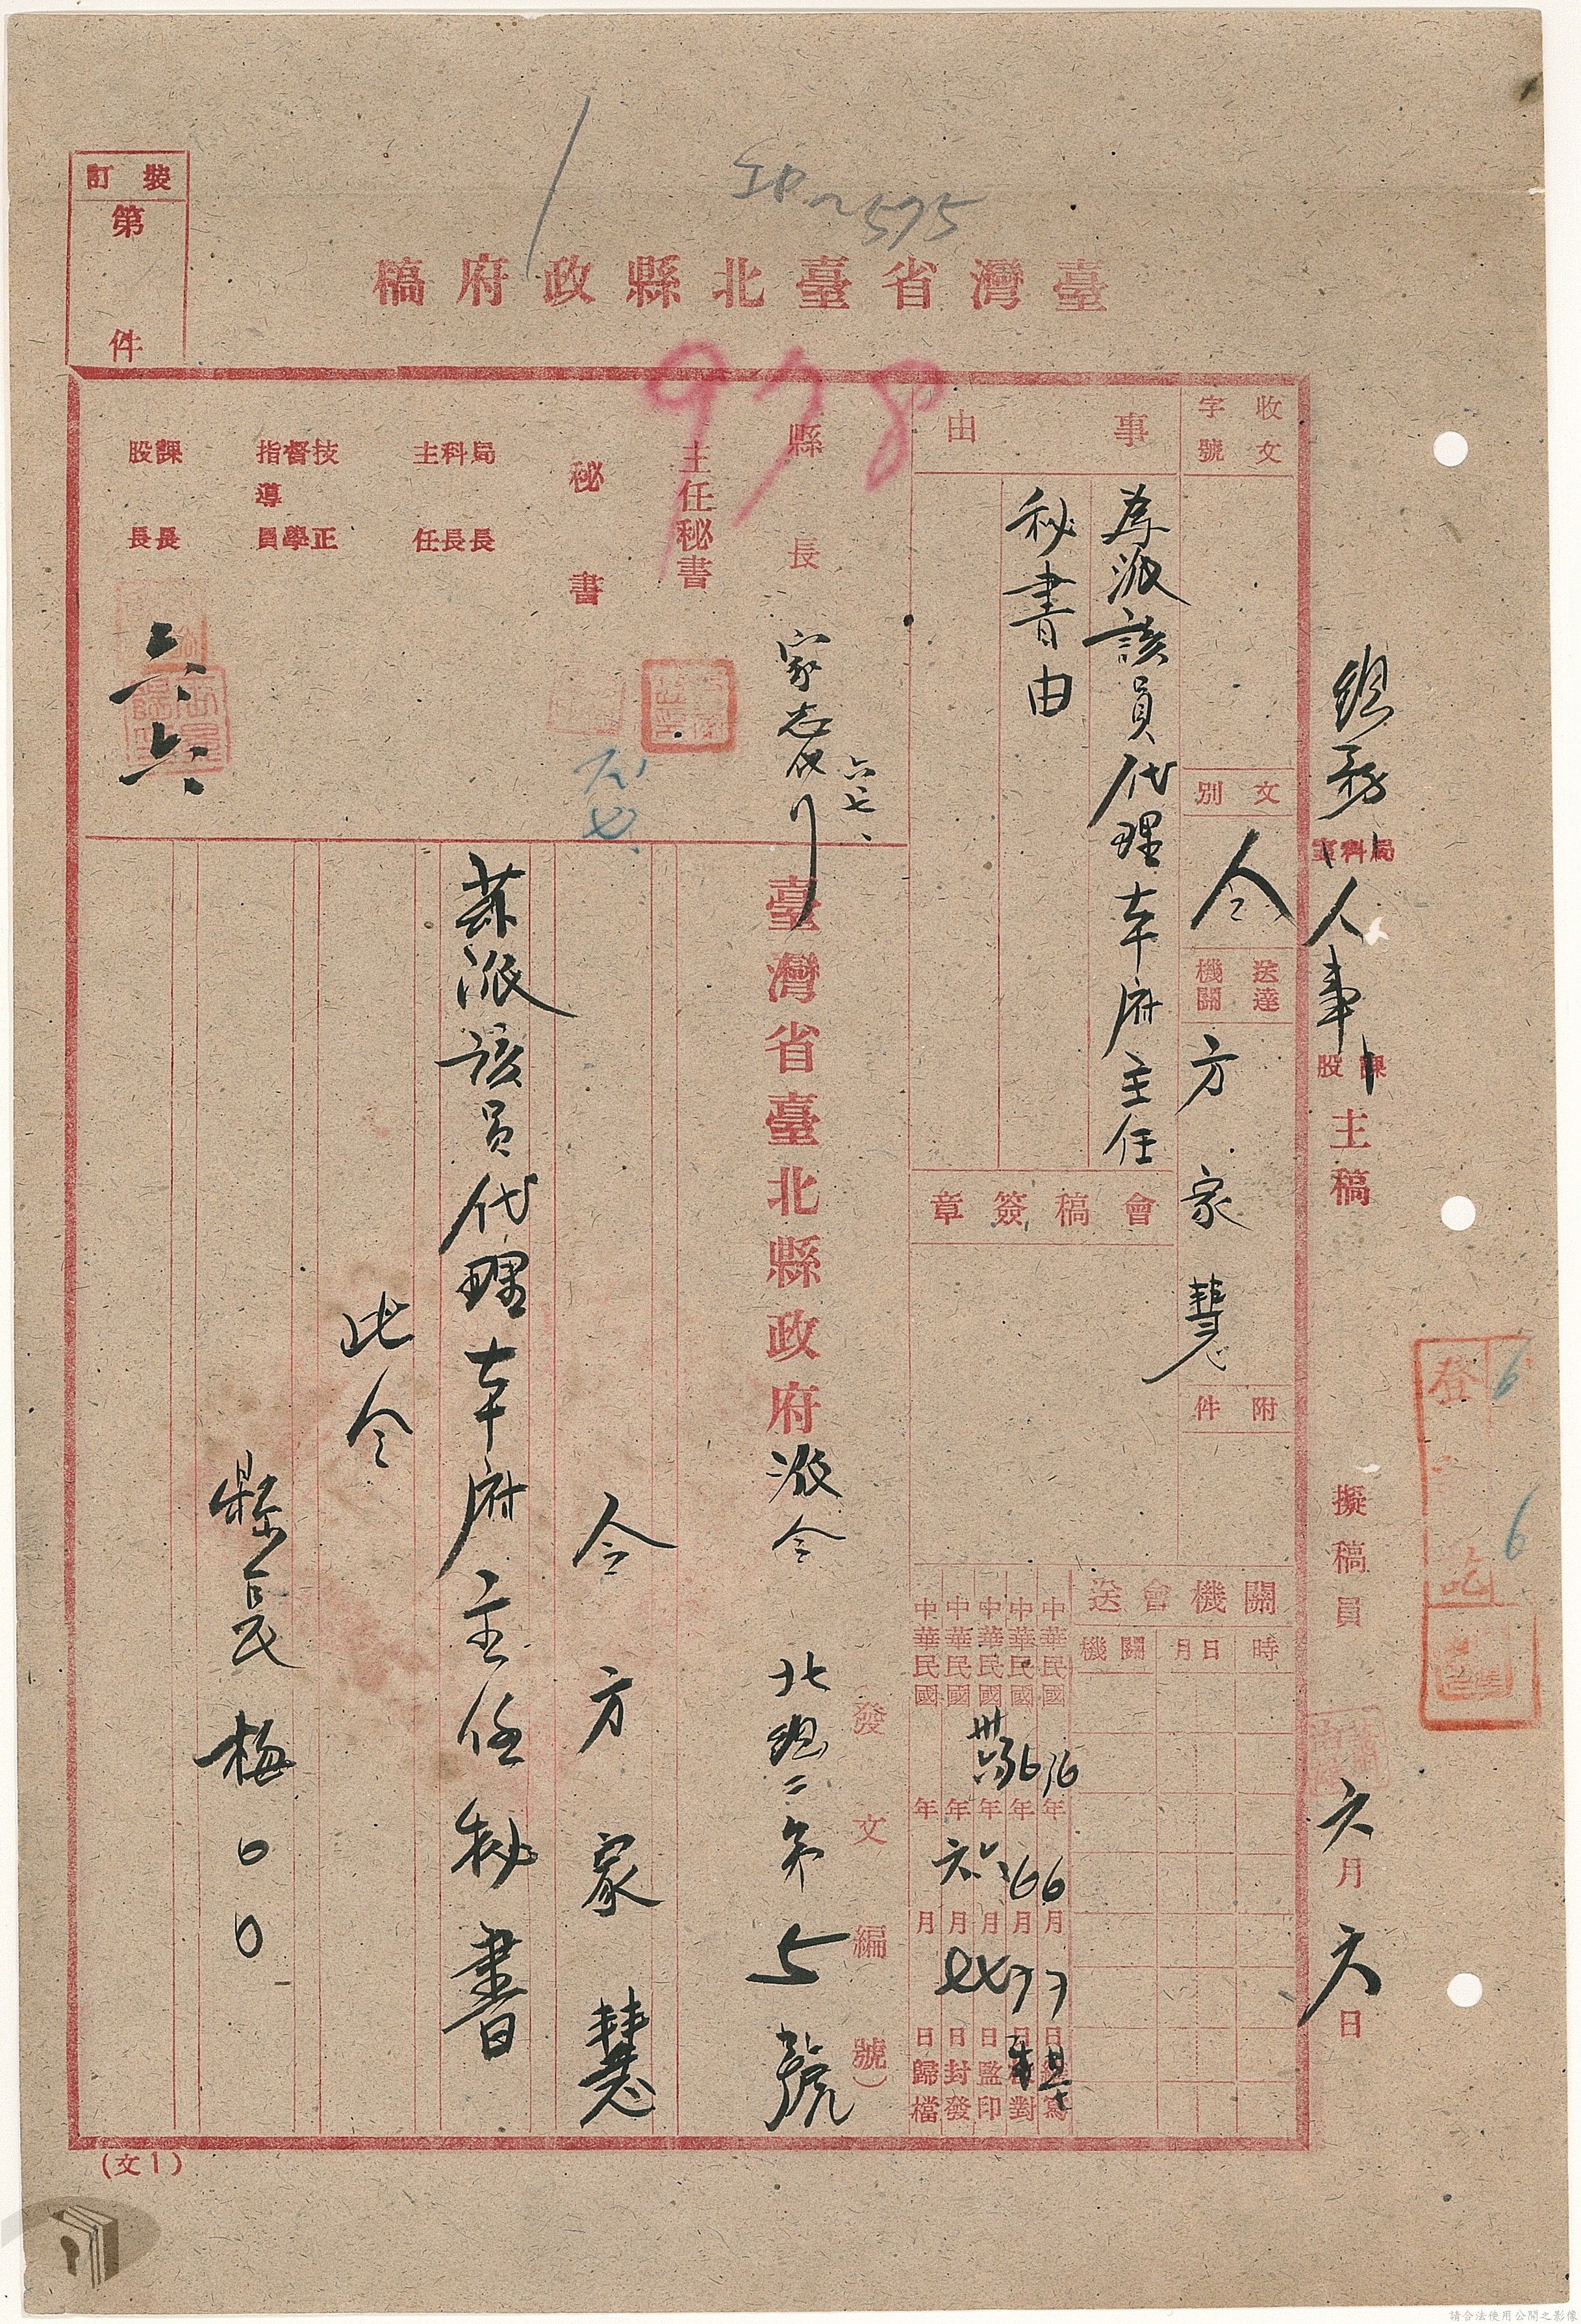 臺灣省臺北縣政府稿
裝訂
第 件
978
總務 局科室 人事 課股 主稿
擬稿員
六月六日
登
訖
6
6
收文字號
文別
令
送達機關
方家慧
附件
事由
為派該員代理本府主任
秘書由
會稿簽章
關機會送
時
日月
關機
中華民國36年6月7日繕寫
中華民國36年6月7日校對
中華民國卅六年六月七日監印
中華民國 年六月七日封發
中華民國 年 月 日歸檔
縣長
家志代行
六、七、
主任秘書
秘書
局科主
長長任
技督指導
正學員
課股
長長
六、六、
臺灣省臺北縣政府派令
北總二第5號
發文編號)
令方家慧
茲派該員代理本府主任秘書
此令
縣長梅〇〇
(文1)
請合法使用公開之影像